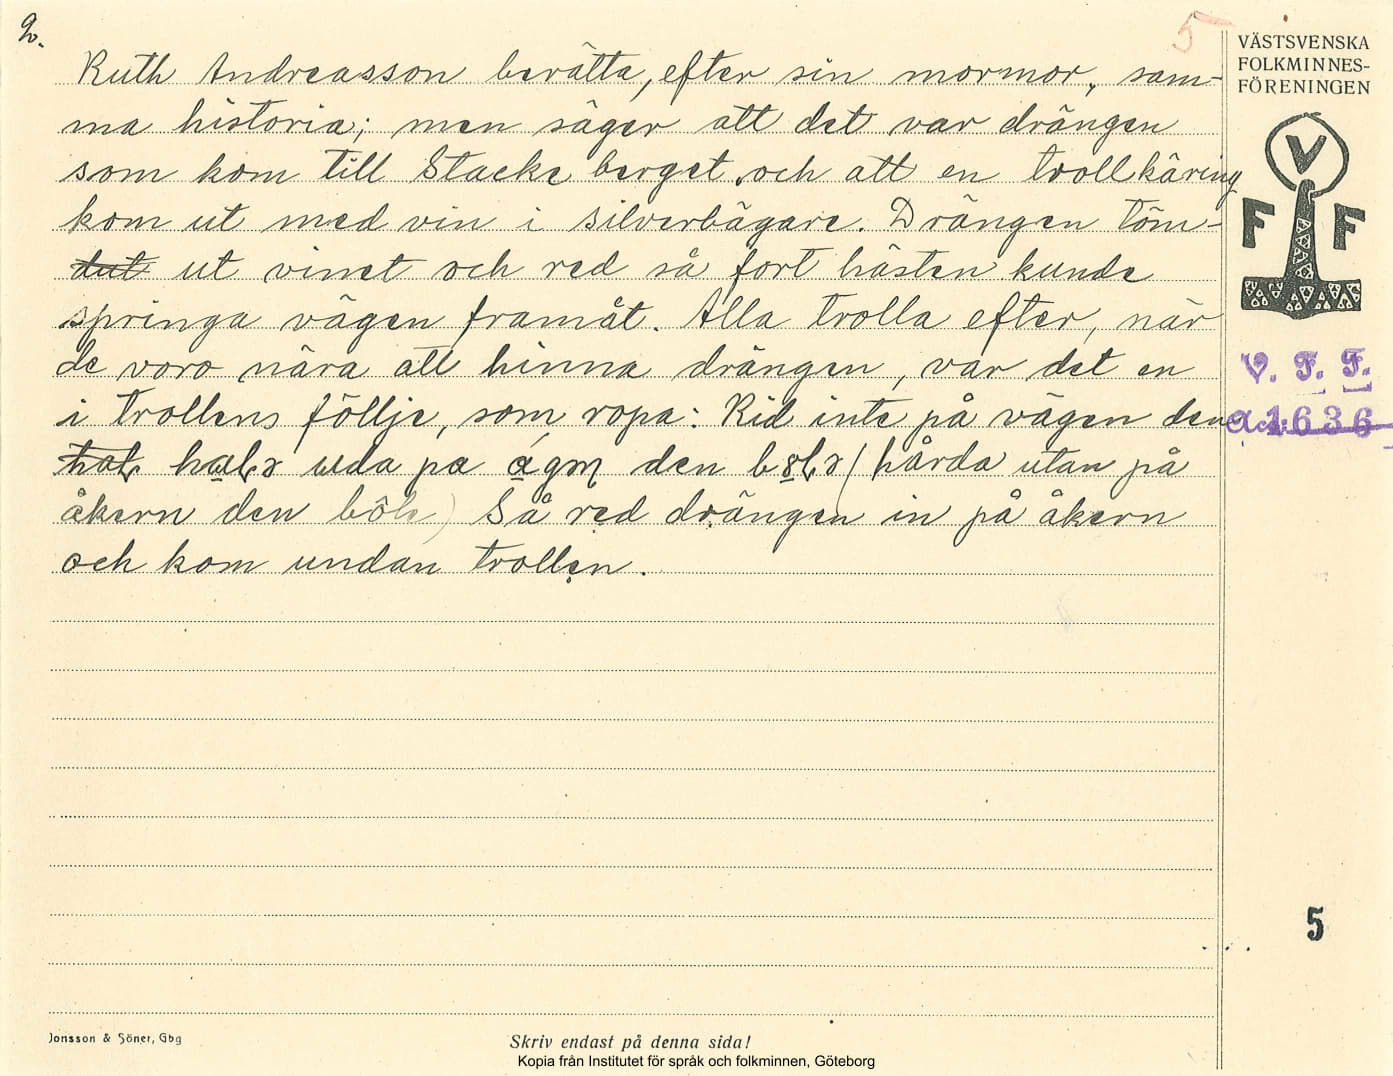 2.
5
Ruth Andreasson berätta, efter sin mormor, sam-
ma historia; men säger att det var drängen
som kom till Stacke berget och att en trollkäring
kom ut med vin i silverbägare. Drängen töm-
dat ut vinet och red så fort hästen kunde
springa vägen framåt. Alla trolla efter, när
de voro nära att hinna drängen, var det en
i trollens föllje, som ropa: Rid inte på vägen den
uda pa den (hårda utan på
åkern den böle) Så red drängen in på åkern
och kom undan trollen.
VÄSTSVENSKA
FOLKMINNES-
FÖRENINGEN
V
F F
V. F. F.
1636
5
Jonsson & Söner, Gbg
Skriv endast på denna sida!
Kopia från Institutet för språk och folkminnen, Göteborg